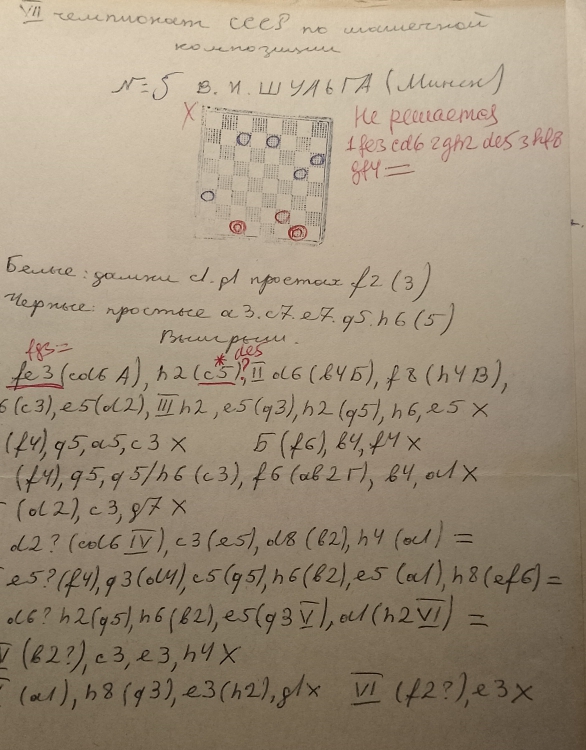 VII чемпионат СССР по шашечной
композиции
№=5 В. И. ШУЛЬГА (Минск)
X
Не решается
1 fe3 cd6 2 gh2 de5 3 hf8
gf4 =
Белые: дамки d1. g1 простая f2 (3)
Черные: простые a3. c7. e7. g5. h6 (5)
Выигрыш.
fg3= de5
fe3 (cd6 A), h2 (c5)*?, II d6 (b4Б), f8 (h4 В),
6 (c3), e5 (d2), III h2, e5 (g3), h2 (g5), h6, e5 X
(f4), g5, a5, c3 X Б (f6), b4, f4 X
(f4), g5, g5/h6 (c3), f6 (ab2 Г), b4, a1 X
(d2), c3, g7 X
d2? (cd6 IV), c3 (e5), d8 (b2), h4 (a1) =
e5? (f4), g3 (d4), c5 (g5), h6 (b2), e5 (a1), h8 (ef6) =
d6? h2 (g5), h6 (b2), e5 (g3 V), a1 (h2 VI) =
V (b2?), c3, e3, h4 X
(a1), h8 (g3), e3 (h2), g1 x VI (f2?), e3 X